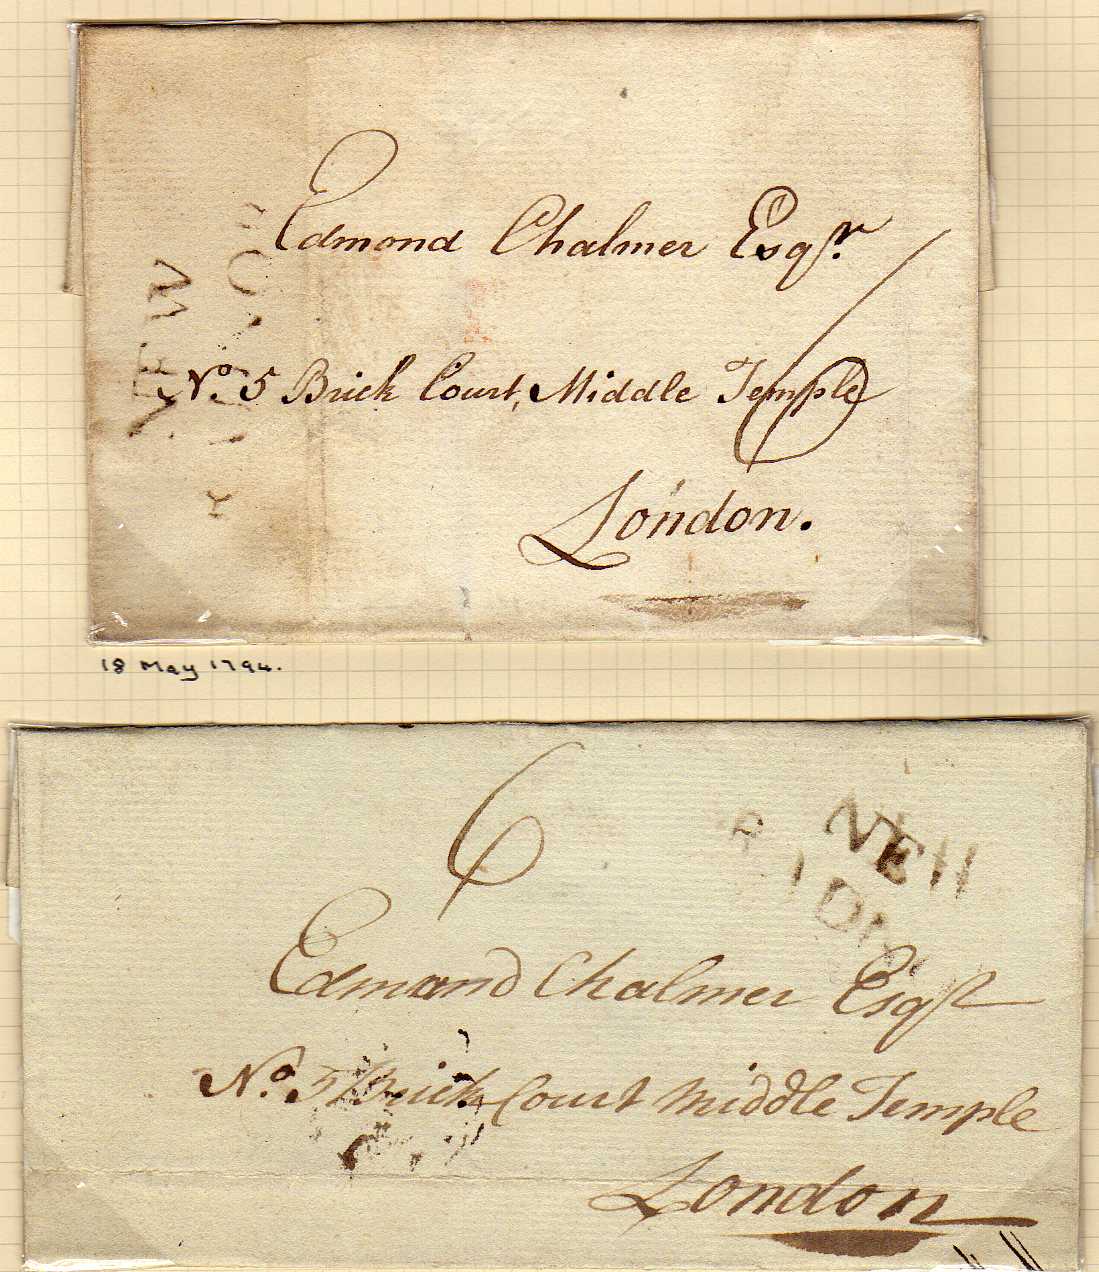 Edmond Chalmer Esqr.
No. 5 Brick Court, Middle Temple
London.
NEW
18 May 1794.
6
NEW
Edmond Chalmer Esqr
No. 5 Brick Court Middle Temple
London